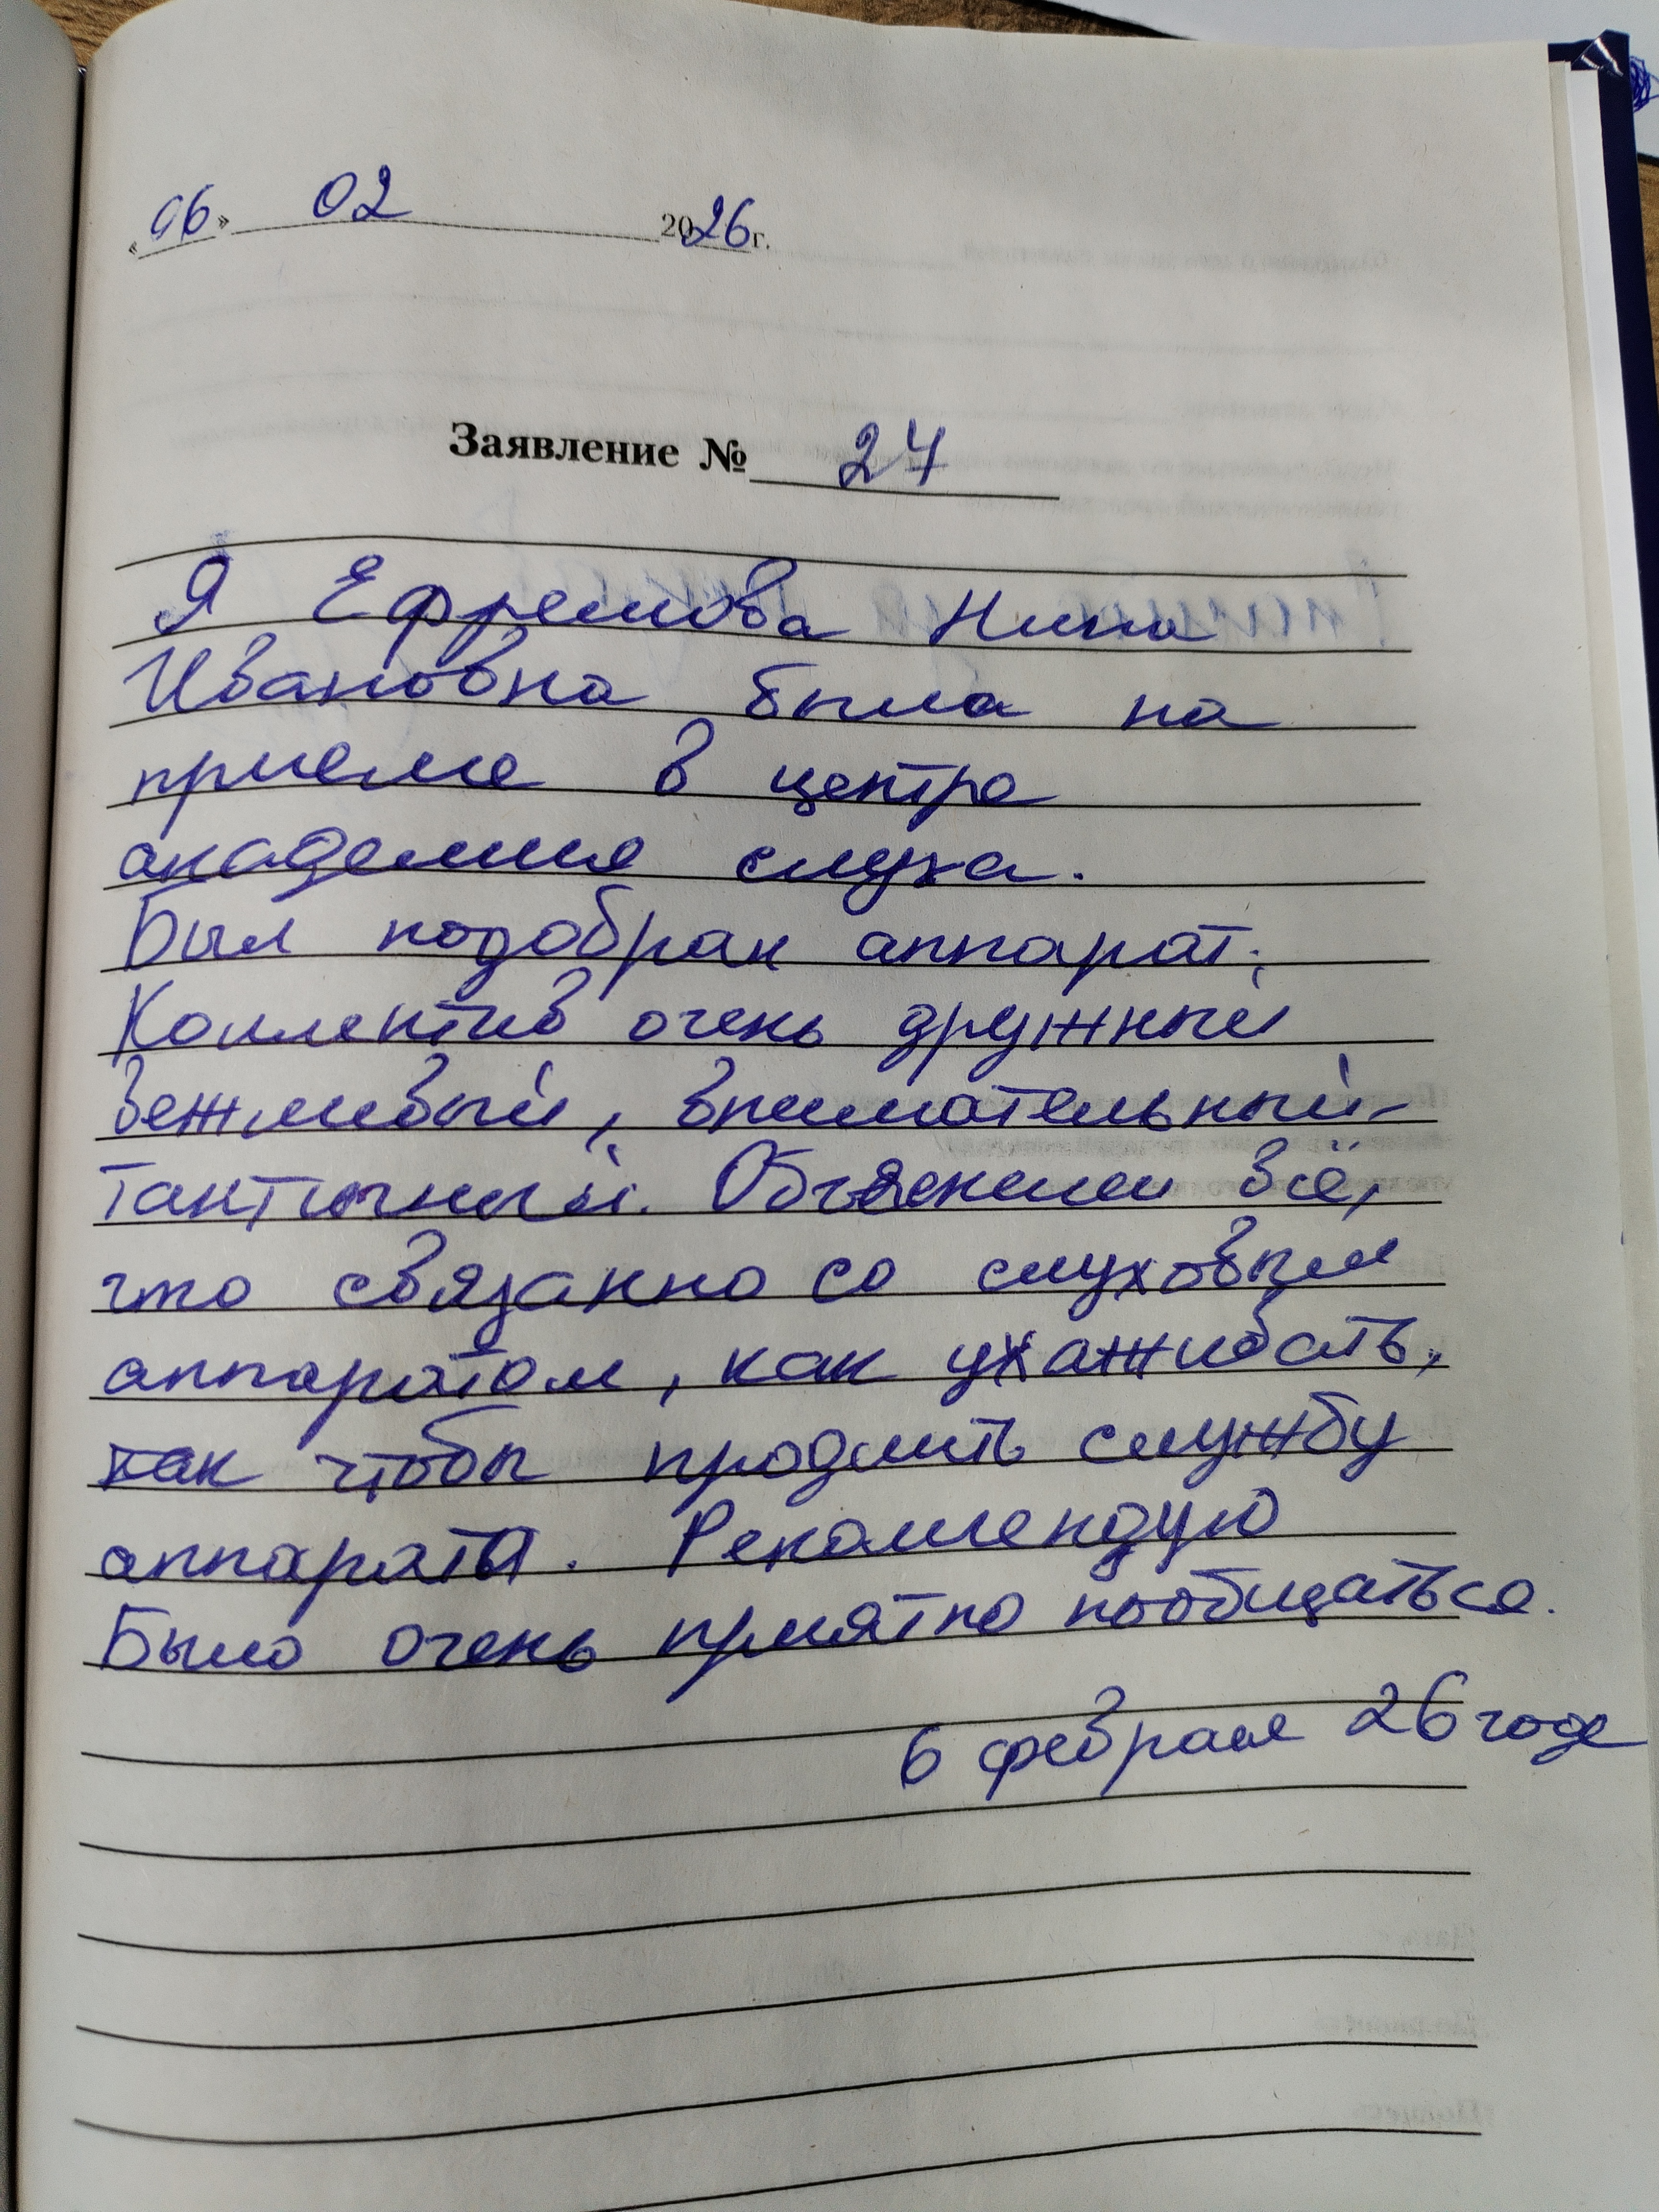 «06» 02 2026 г.
Заявление № 24
Я Ефремова Нина
Ивановна была на
приеме в центре
академия слуха.
Был подобран аппарат.
Коллектив очень дружный
вежливый, внимательный
тактичный. Объяснили всё,
что связанно со слуховым
аппаратом, как ухаживать,
как чтобы продлить службу
аппарата. Рекомендую
Было очень приятно пообщаться.
6 февраля 26 года